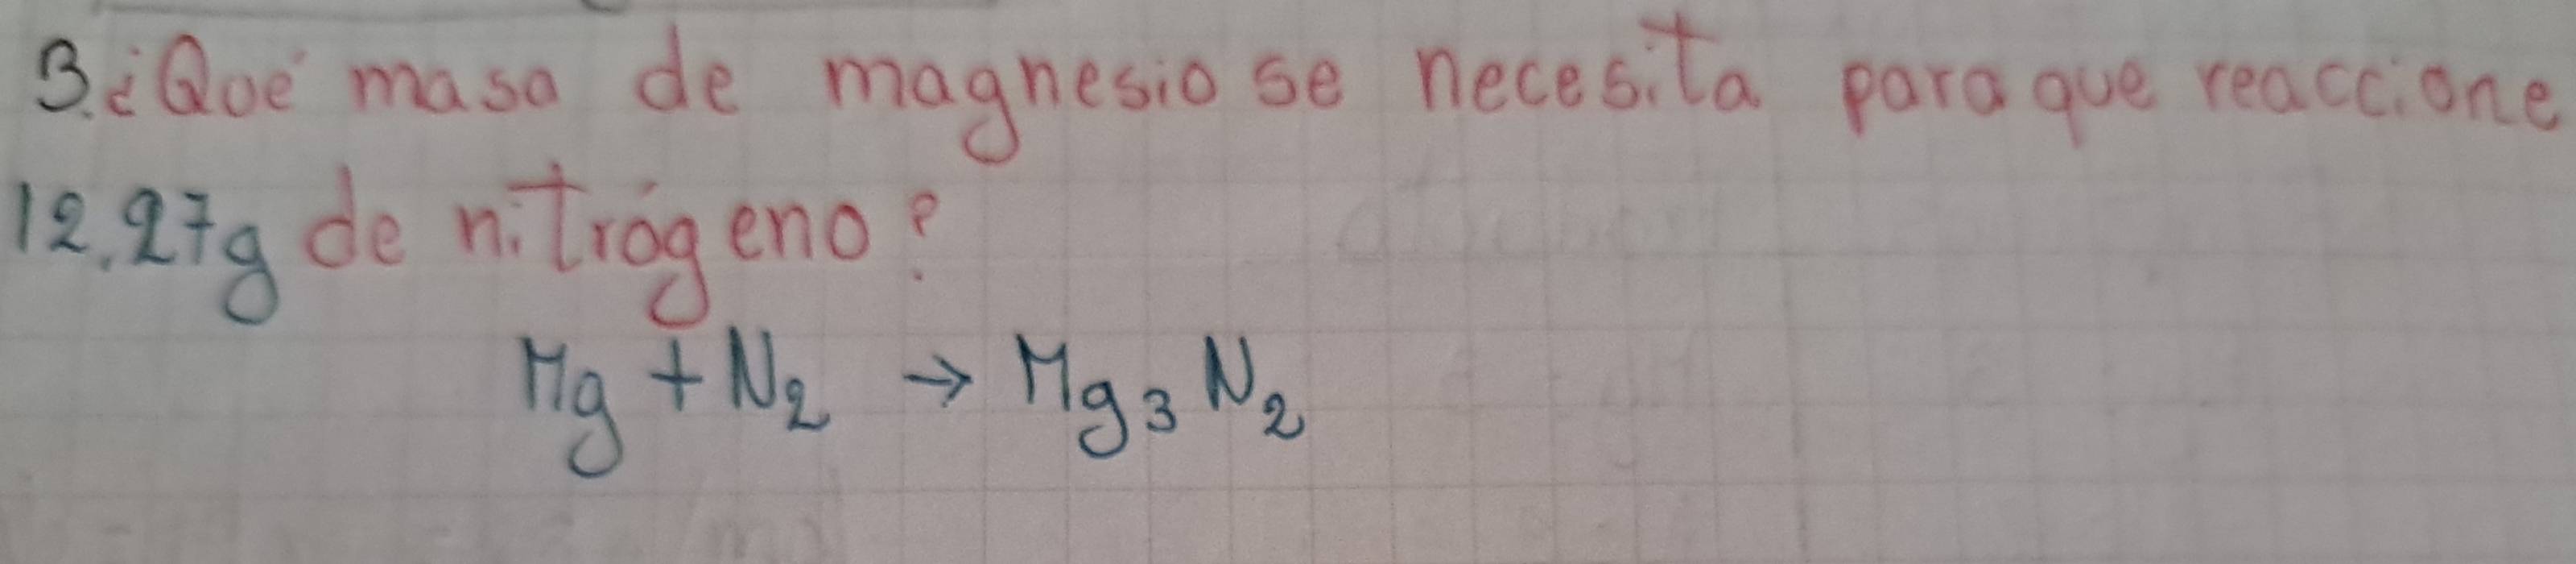 3. ¿Qué masa de magnesio se necesita para que reaccione
12.27g de nitrógeno?
Mg + N₂ → Mg₃N₂